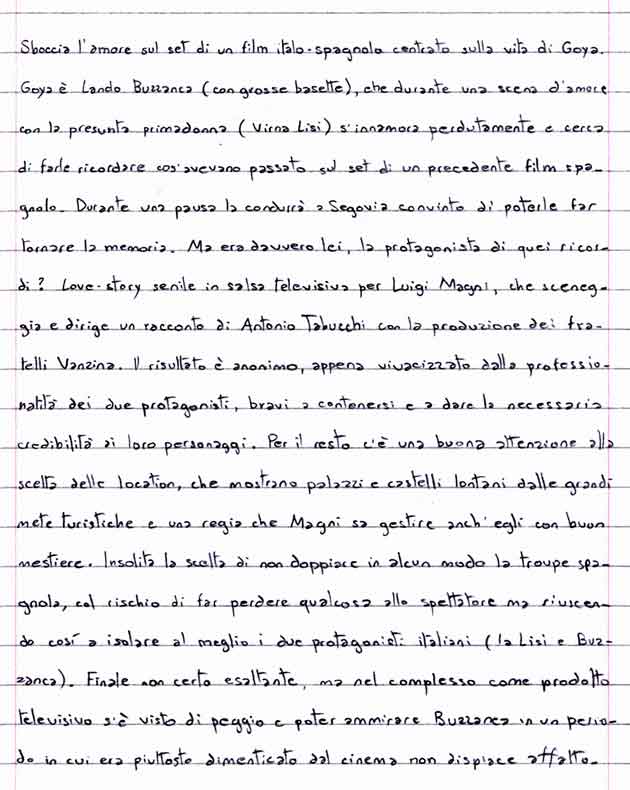 Sboccia l'amore sul set di un film italo-spagnolo centrato sulla vita di Goya.
Goya è Lando Buzzanca (con grosse basette), che durante una scena d'amore
con la presunta primadonna (Virna Lisi) s'innamora perdutamente e cerca
di farle ricordare cos'avevano passato sul set di un precedente film spa-
gnolo. Durante una pausa la condurrà a Segovia convinto di poterle far
tornare la memoria. Ma era davvero lei, la protagonista di quei ricor-
di? Love-story senile in salsa televisiva per Luigi Magni, che sceneg-
gia e dirige un racconto di Antonio Tabucchi con la produzione dei fra-
telli Vanzina. Il risultato è anonimo, appena vivacizzato dalla professio-
nalità dei due protagonisti, bravi a contenersi e a dare la necessaria
credibilità ai loro personaggi. Per il resto c'è una buona attenzione alla
scelta delle location, che mostrano palazzi e castelli lontani dalle grandi
mete turistiche e una regia che Magni sa gestire anch'egli con buon
mestiere. Insolita la scelta di non doppiare in alcun modo la troupe spa-
gnola, col rischio di far perdere qualcosa allo spettatore ma riuscen-
do così a isolare al meglio i due protagonisti italiani (la Lisi e Buz-
zanca). Finale non certo esaltante, ma nel complesso come prodotto
televisivo s'è visto di peggio e poter ammirare Buzzanca in un perio-
do in cui era piuttosto dimenticato dal cinema non dispiace affatto.